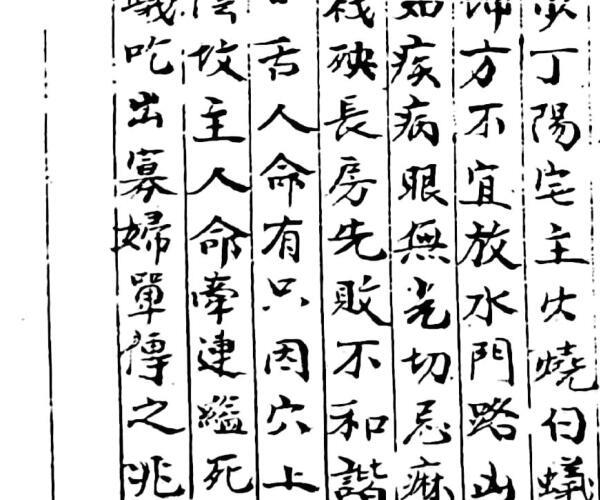 丁陽宅主火燒白蟻
方不宜放水門路山
疾病眼無光切忌麻
殃長房先敗不和諧
舌人命有只因穴上
坟主人命牽連縊死
吃出寡婦單傳之兆